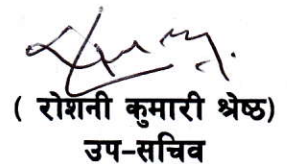 ( रोशनी कुमारी श्रेष्ठ)
उप-सचिव